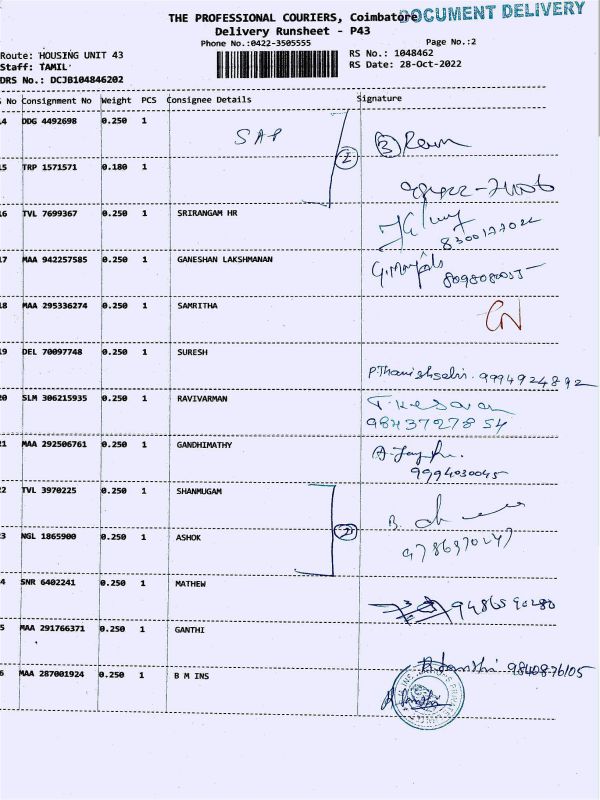 THE PROFESSIONAL COURIERS, Coimbatore
DOCUMENT DELIVERY
Delivery Runsheet - P43
Phone No.:0422-3505555
Page No.:2
Route: HOUSING UNIT 43
RS No.: 1048462
Staff: TAMIL
RS Date: 28-Oct-2022
DRS No.: DCJB104846202
No Consignment No Weight PCS Consignee Details Signature
14 DDG 4492698 0.250 1 SAP
2
3
15 TRP 1571571 0.180 1
16 TVL 7699367 0.250 1 SRIRANGAM HR
8300127022
17 MAA 942257585 0.250 1 GANESHAN LAKSHMANAN
18 MAA 295336274 0.250 1 SAMRITHA
CN
19 DEL 70097748 0.250 1 SURESH
9994924892
20 SLM 306215935 0.250 1 RAVIVARMAN
T. Kesavan
9843727854
21 MAA 292506761 0.250 1 GANDHIMATHY
9994030045
22 TVL 3970225 0.250 1 SHANMUGAM
2
23 NGL 1865900 0.250 1 ASHOK
9786970247
4 SNR 6402241 0.250 1 MATHEW
9486590280
5 MAA 291766371 0.250 1 GANTHI
9840876105
6 MAA 287001924 0.250 1 B M INS